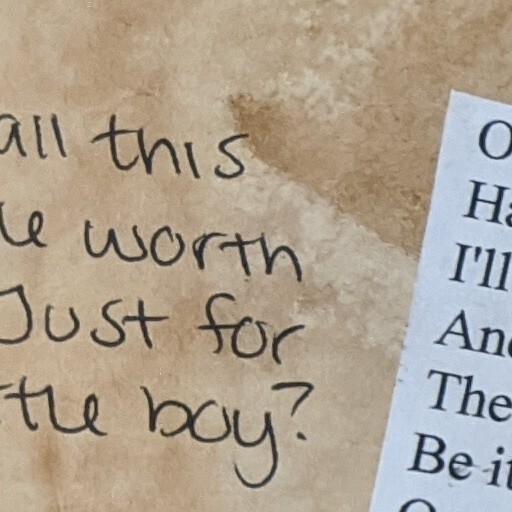 all this
worth
Just for
boy?
O
Ha
I'll
And
The
Be it